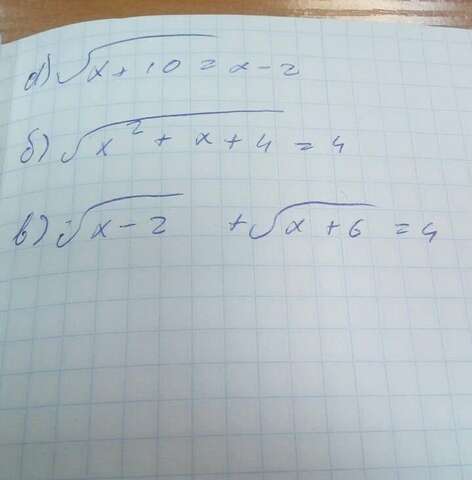 а) √x+10 = x-2
б) √x² + x + 4 = 4
в) √x-2 + √x+6 = 4